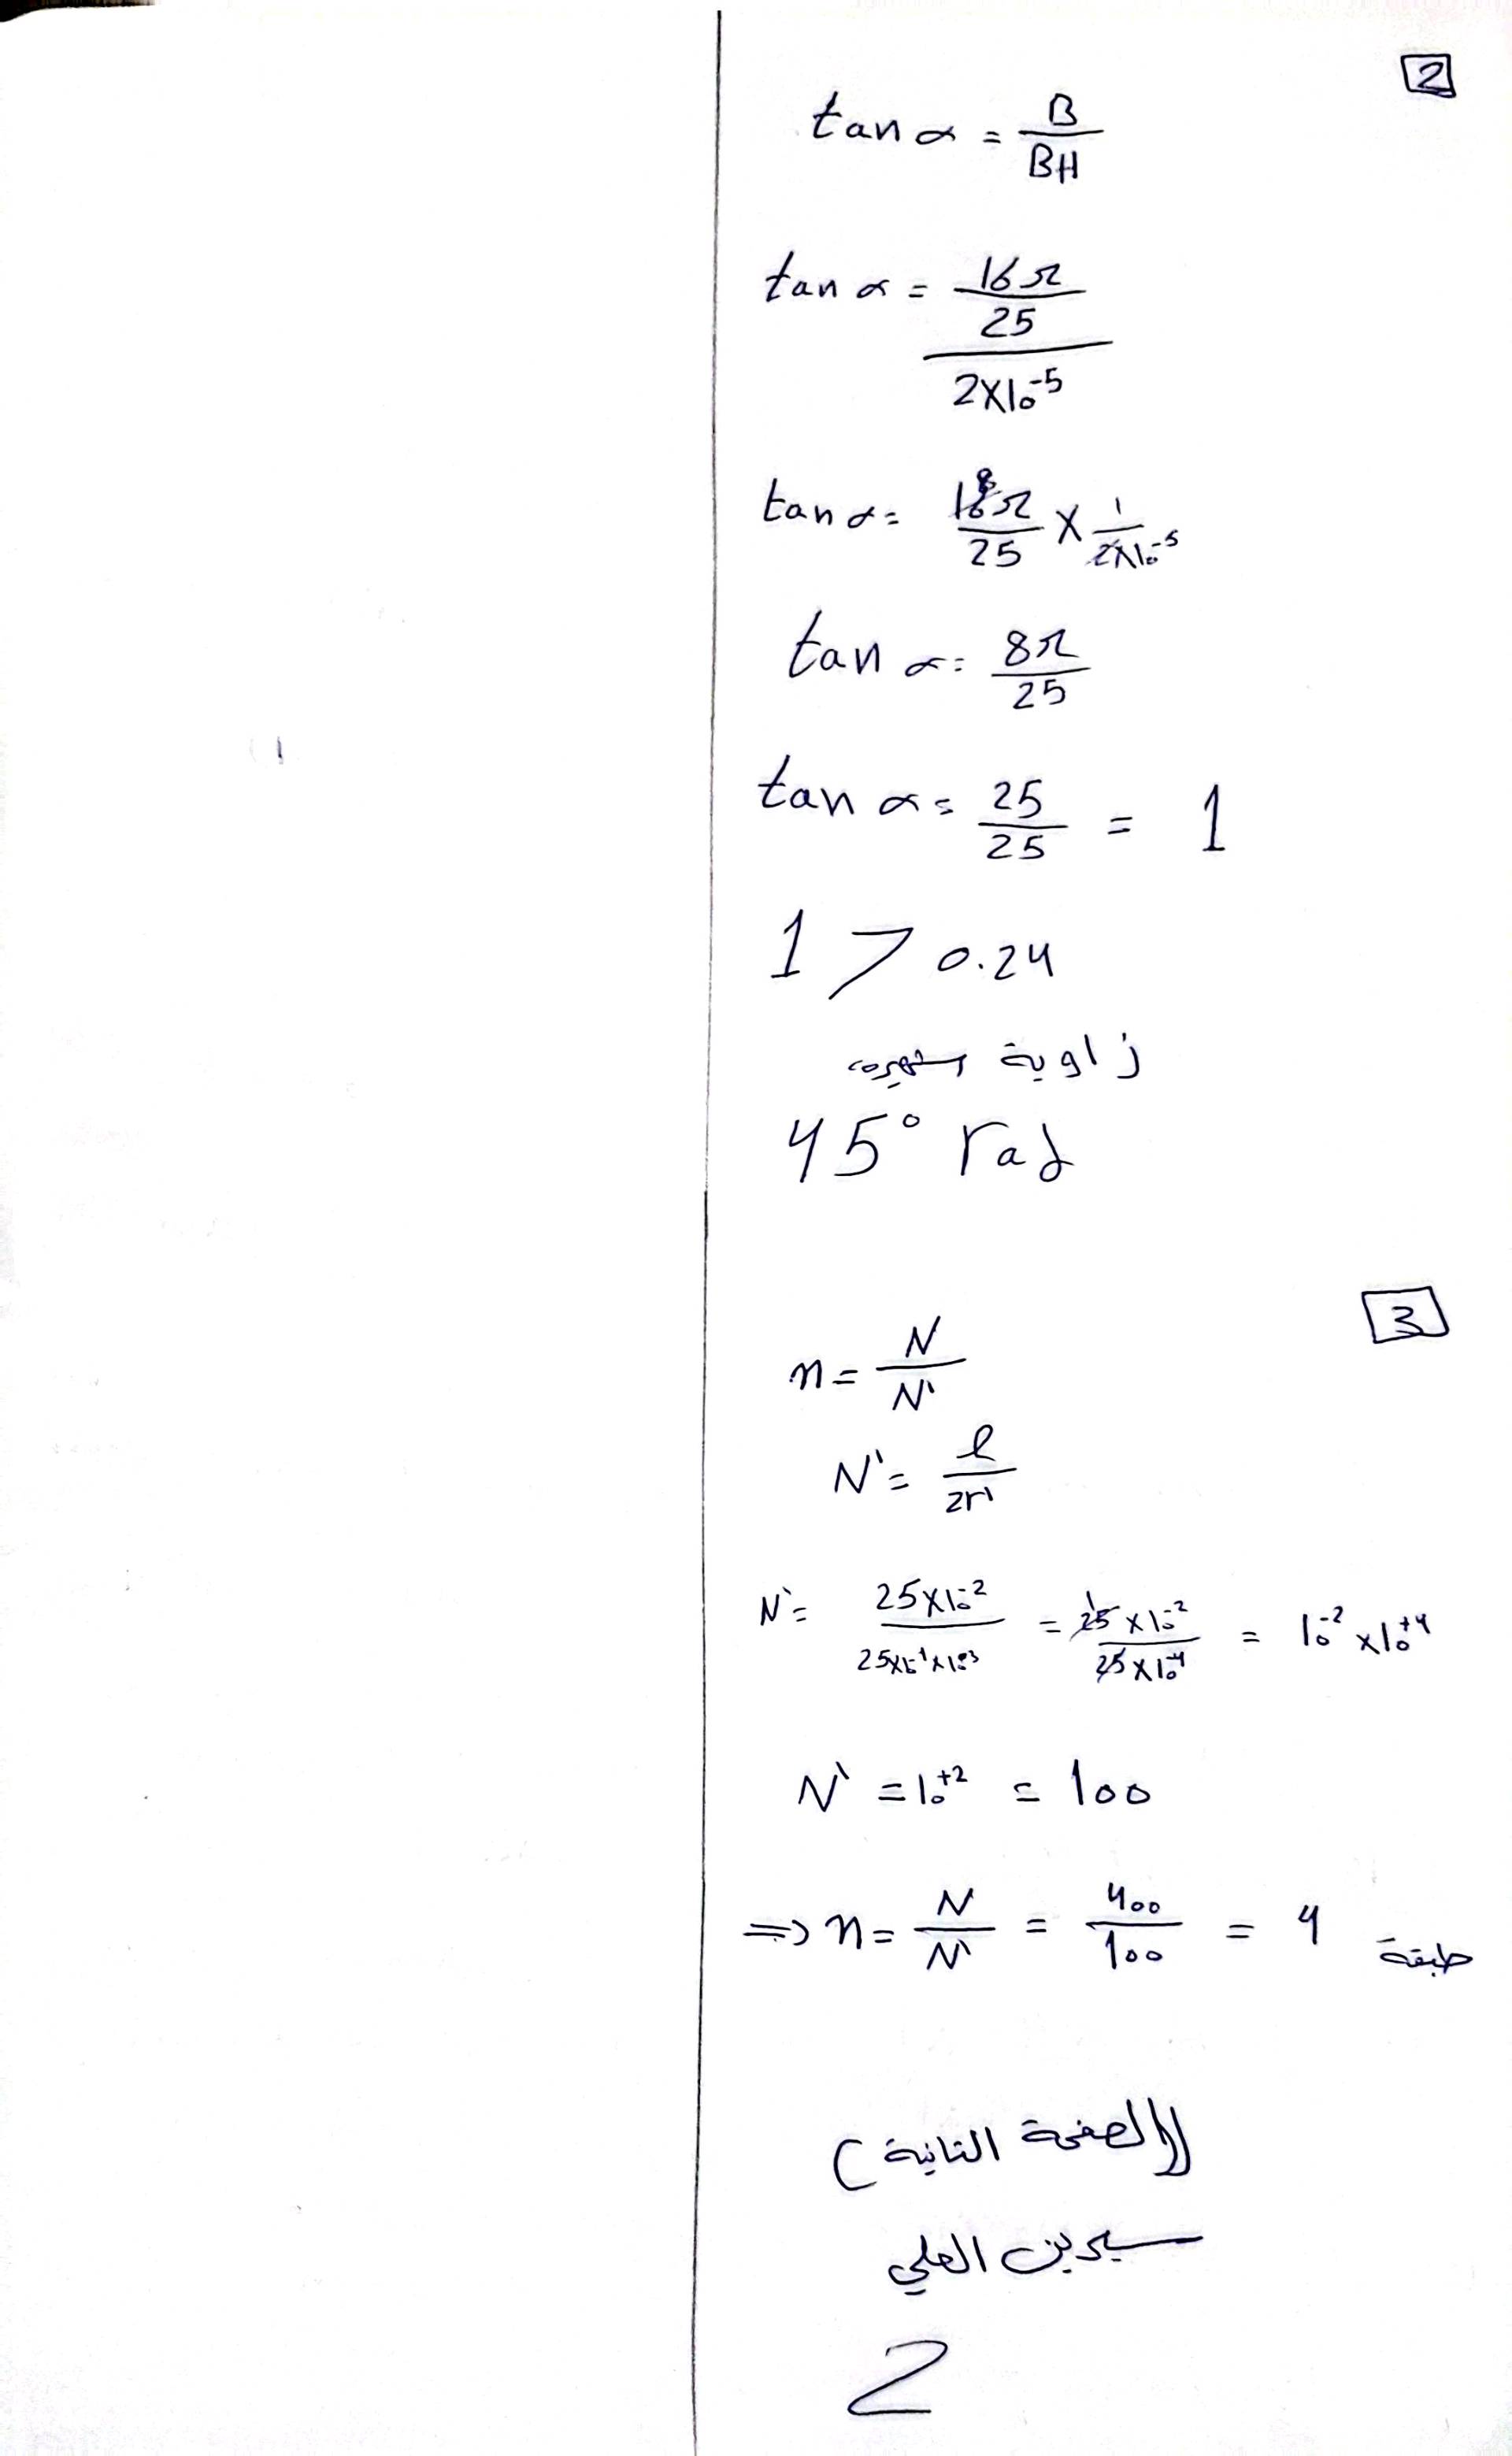 2
tan α = B / BH
tan α = (16π / 25) / (2×10⁻⁵)
tan α = 16π / 25 × 1 / 2×10⁻⁵
8
tan α = 8π / 25
tan α = 25 / 25 = 1
1 > 0.24
زاوية
45° rad
3
n = N / N'
N' = l / 2r'
N' = 25×10⁻² / 25×10⁻¹×10⁻³ = 25×10⁻² / 25×10⁻⁴ = 10⁻² × 10⁺⁴
N' = 10⁺² = 100
⇒ n = N / N' = 400 / 100 = 4 طبقة
((الصفحة الثانية)
سيرين العلي
2